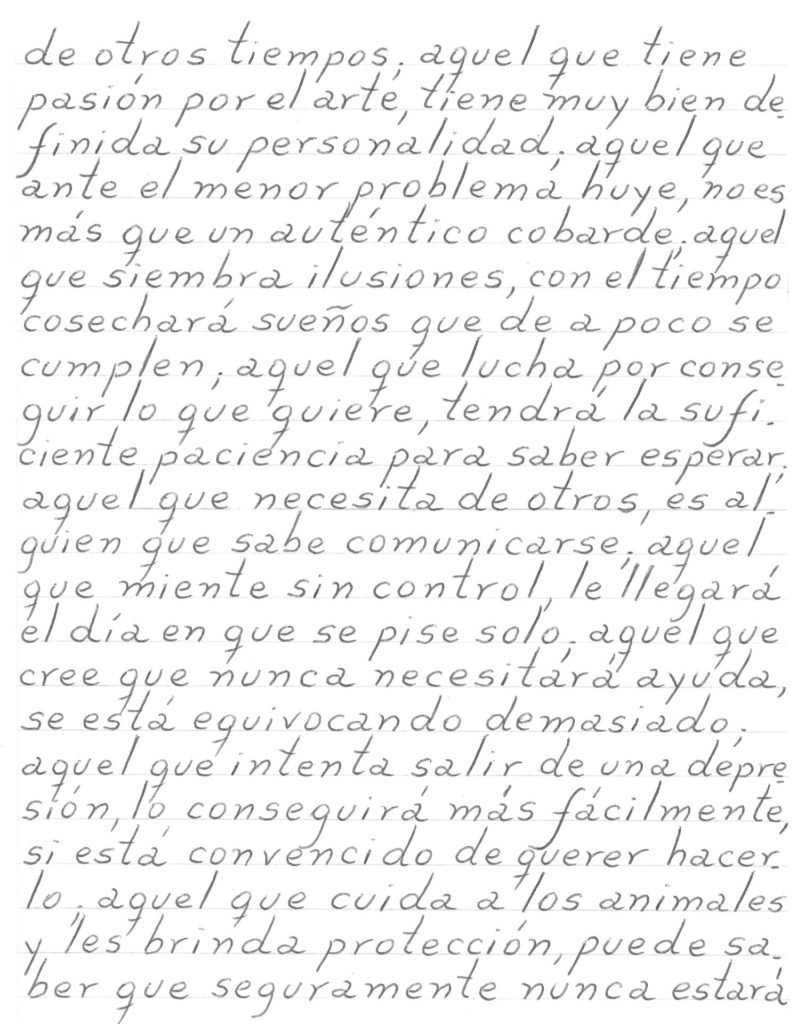 de otros tiempos; aquel que tiene
pasión por el arte, tiene muy bien de-
finida su personalidad; aquel que
ante el menor problema huye, no es
más que un auténtico cobarde; aquel
que siembra ilusiones, con el tiempo
cosechará sueños que de a poco se
cumplen; aquel que lucha por conse-
guir lo que quiere, tendrá la sufi-
ciente paciencia para saber esperar;
aquel que necesita de otros, es al-
guien que sabe comunicarse; aquel
que miente sin control, le llegará
el día en que se pise solo; aquel que
cree que nunca necesitará ayuda,
se está equivocando demasiado;
aquel que intenta salir de una depre-
sión, lo conseguirá más fácilmente,
si está convencido de querer hacer-
lo; aquel que cuida a los animales
y les brinda protección, puede sa-
ber que seguramente nunca estará